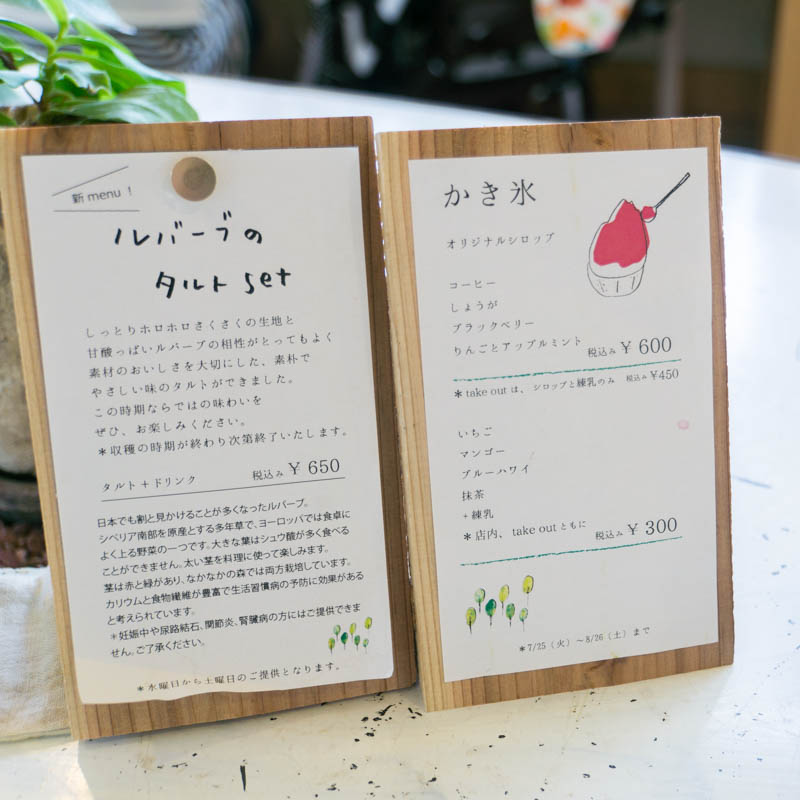 新 menu !
ルバーブの
タルト set
しっとりホロホロさくさくの生地と
甘酸っぱいルバーブの相性がとってもよく
素材のおいしさを大切にした、素朴で
やさしい味のタルトができました。
この時期ならではの味わいを
ぜひ、お楽しみください。
*収穫の時期が終わり次第終了いたします。
タルト+ドリンク 税込み ¥ 650
日本でも割と見かけることが多くなったルバーブ。
シベリア南部を原産とする多年草で、ヨーロッパでは食卓に
よく上る野菜の一つです。大きな葉はシュウ酸が多く食べる
ことができません。太い茎を料理に使って楽しみます。
茎は赤と緑があり、なかなかの森では両方栽培しています。
カリウムと食物繊維が豊富で生活習慣病の予防に効果がある
と考えられています。
*妊娠中や尿路結石、関節炎、腎臓病の方にはご提供できま
せん。ご了承ください。
*水曜日から土曜日のご提供となります。
かき氷
オリジナルシロップ
コーヒー
しょうが
ブラックベリー
りんごとアップルミント 税込み ¥ 600
*take out は、シロップと練乳のみ 税込み ¥450
いちご
マンゴー
ブルーハワイ
抹茶
+練乳
*店内、take out ともに 税込み ¥ 300
*7/25(火)~8/26(土)まで